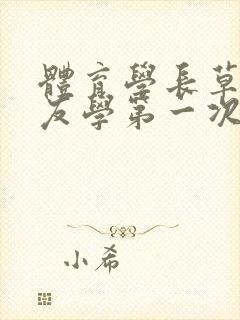 體育學長草
友學第一次
小希